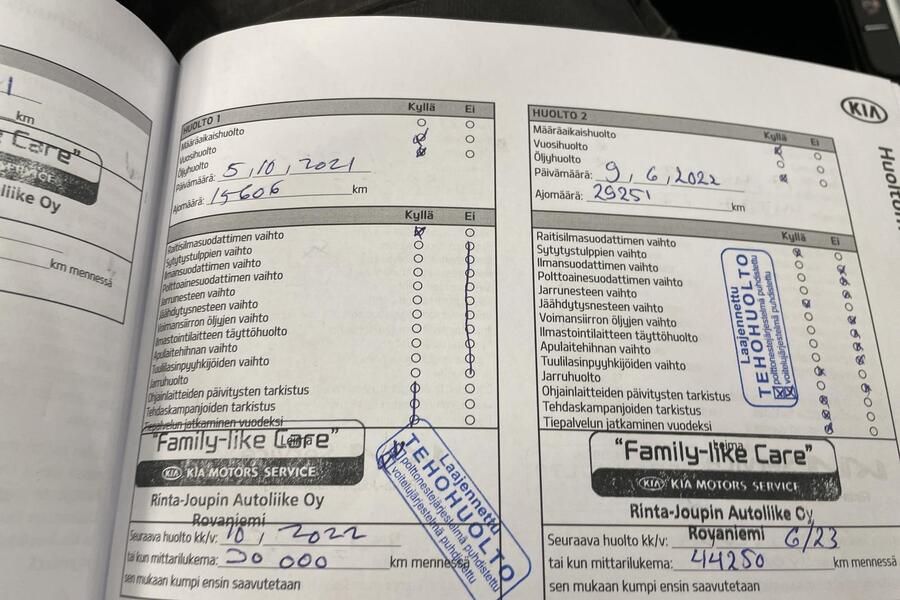 1
km
e Care”
liike Oy
km mennessä
HUOLTO 1 Kyllä Ei
Määräaikaishuolto
Vuosihuolto
Öljyhuolto
Päivämäärä: 5,10,2021
Ajomäärä: 15606 km
Kyllä Ei
Raitisilmasuodattimen vaihto
Sytytystulppien vaihto
Ilmansuodattimen vaihto
Polttoainesuodattimen vaihto
Jarrunesteen vaihto
Jäähdytysnesteen vaihto
Voimansiirron öljyjen vaihto
Ilmastointilaitteen täyttöhuolto
Apulaitehihnan vaihto
Tuulilasinpyyhkijöiden vaihto
Jarruhuolto
Ohjainlaitteiden päivitysten tarkistus
Tehdaskampanjoiden tarkistus
Tiepalvelun jatkaminen vuodeksi
Leima
“Family-like Care”
KIA KIA MOTORS SERVICE
Rinta-Joupin Autoliike Oy
Rovaniemi
Laajennettu
TEHOHUOLTO
polttonestejärjestelmä puhdistettu
voitelujärjestelmä puhdistettu
Seuraava huolto kk/v: 10, 2022
tai kun mittarilukema: 30 000 km mennessä
sen mukaan kumpi ensin saavutetaan
KIA
HUOLTO 2 Kyllä Ei
Määräaikaishuolto
Vuosihuolto
Öljyhuolto
Päivämäärä: 9,6,2022
Ajomäärä: 29251 km
Kyllä Ei
Raitisilmasuodattimen vaihto
Sytytystulppien vaihto
Ilmansuodattimen vaihto
Polttoainesuodattimen vaihto
Jarrunesteen vaihto
Jäähdytysnesteen vaihto
Voimansiirron öljyjen vaihto
Ilmastointilaitteen täyttöhuolto
Apulaitehihnan vaihto
Tuulilasinpyyhkijöiden vaihto
Jarruhuolto
Ohjainlaitteiden päivitysten tarkistus
Tehdaskampanjoiden tarkistus
Tiepalvelun jatkaminen vuodeksi
Laajennettu
TEHOHUOLTO
polttonestejärjestelmä puhdistettu
voitelujärjestelmä puhdistettu
Leima
“Family-like Care”
KIA KIA MOTORS SERVICE
Rinta-Joupin Autoliike Oy
Rovaniemi
Seuraava huolto kk/v: 6/23
tai kun mittarilukema: 44250 km mennessä
sen mukaan kumpi ensin saavutetaan